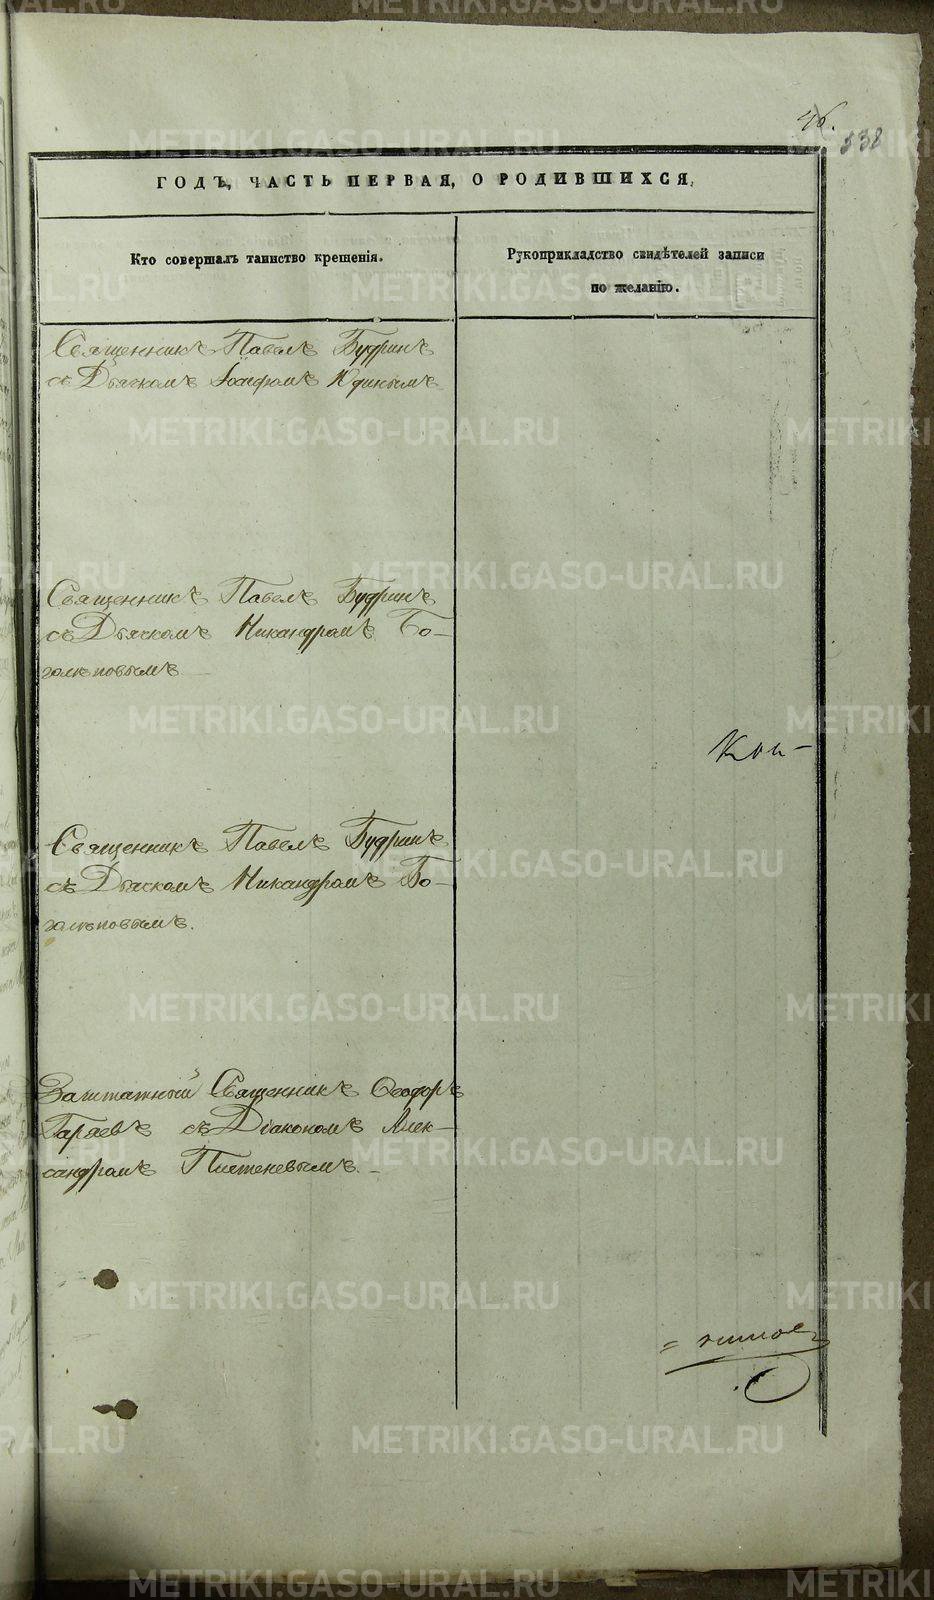 46.
538
ГОДЪ, ЧАСТЬ ПЕРВАЯ, О РОДИВШИХСЯ,
Кто совершалъ таинство крещенія.
Рукоприкладство свидѣтелей записи
по желанію.
Священникъ Павелъ Будринъ
съ Дьячкомъ Іосифомъ Юдинымъ
Священникъ Павелъ Будринъ
съ Дьячкомъ Никандромъ Бо-
голѣповымъ
Священникъ Павелъ Будринъ
съ Дьячкомъ Никандромъ Бо-
голѣповымъ.
Заштатный Священникъ Ѳеодоръ
Гаряевъ съ Діакономъ Алек-
сандромъ
METRIKI.GASO-URAL.RU